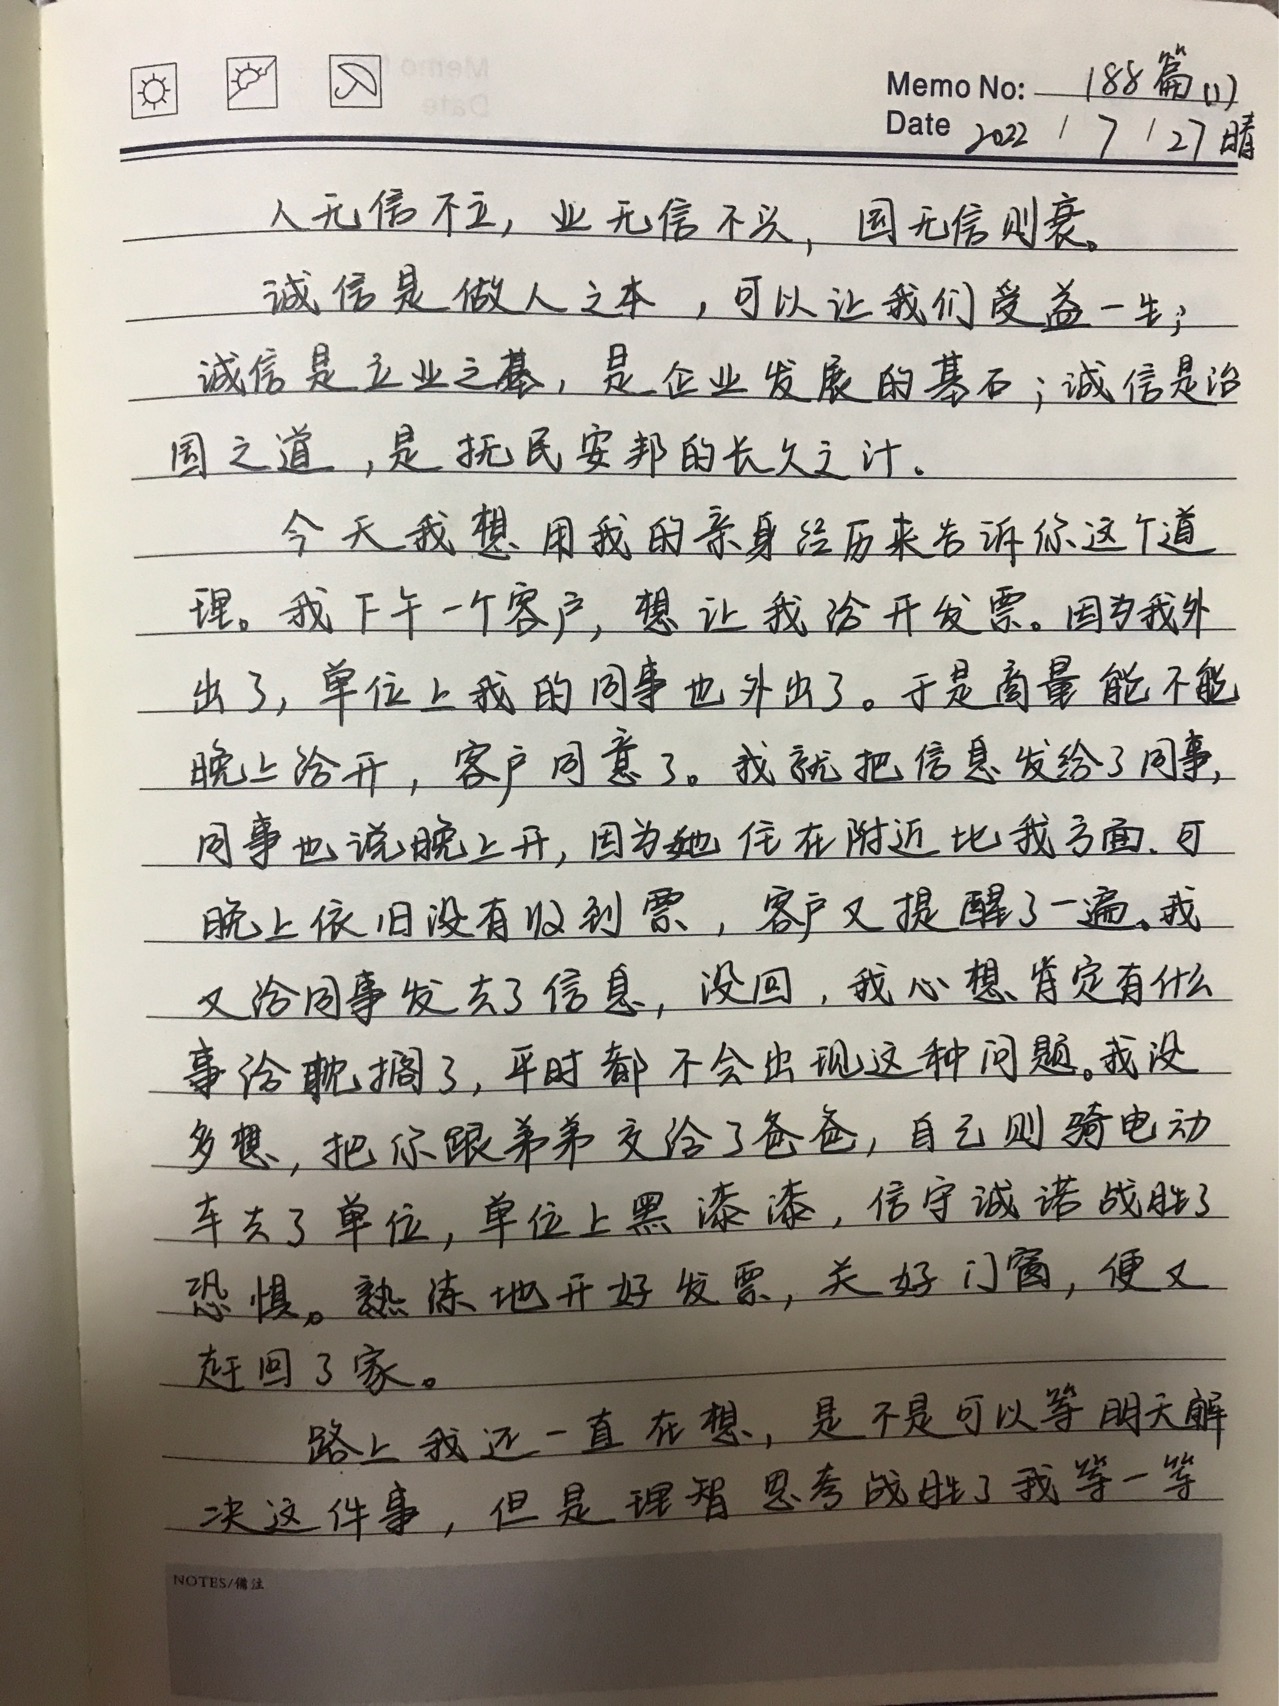 Memo No: 188篇(1)
Date 2022/7/27晴
人无信不立，业无信不兴，国无信则衰。
诚信是做人之本，可以让我们受益一生；
诚信是立业之基，是企业发展的基石；诚信是治
国之道，是抚民安邦的长久之计。
今天我想用我的亲身经历来告诉你这个道
理。我下午一个客户，想让我给开发票。因为我外
出了，单位上我的同事也外出了。于是商量能不能
晚上给开，客户同意了。我就把信息发给了同事，
同事也说晚上开，因为她住在附近比我方面．可
晚上依旧没有收到票，客户又提醒了一遍。我
又给同事发去了信息，没回，我心想肯定有什么
事给耽搁了，平时都不会出现这种问题。我没
多想，把你跟弟弟交给了爸爸，自己则骑电动
车去了单位，单位上黑漆漆，信守诚诺战胜了
恐惧。熟练地开好发票，关好门窗，便又
赶回了家。
路上我还一直在想，是不是可以等明天解
决这件事，但是理智思考战胜了我等一等
NOTES/備注